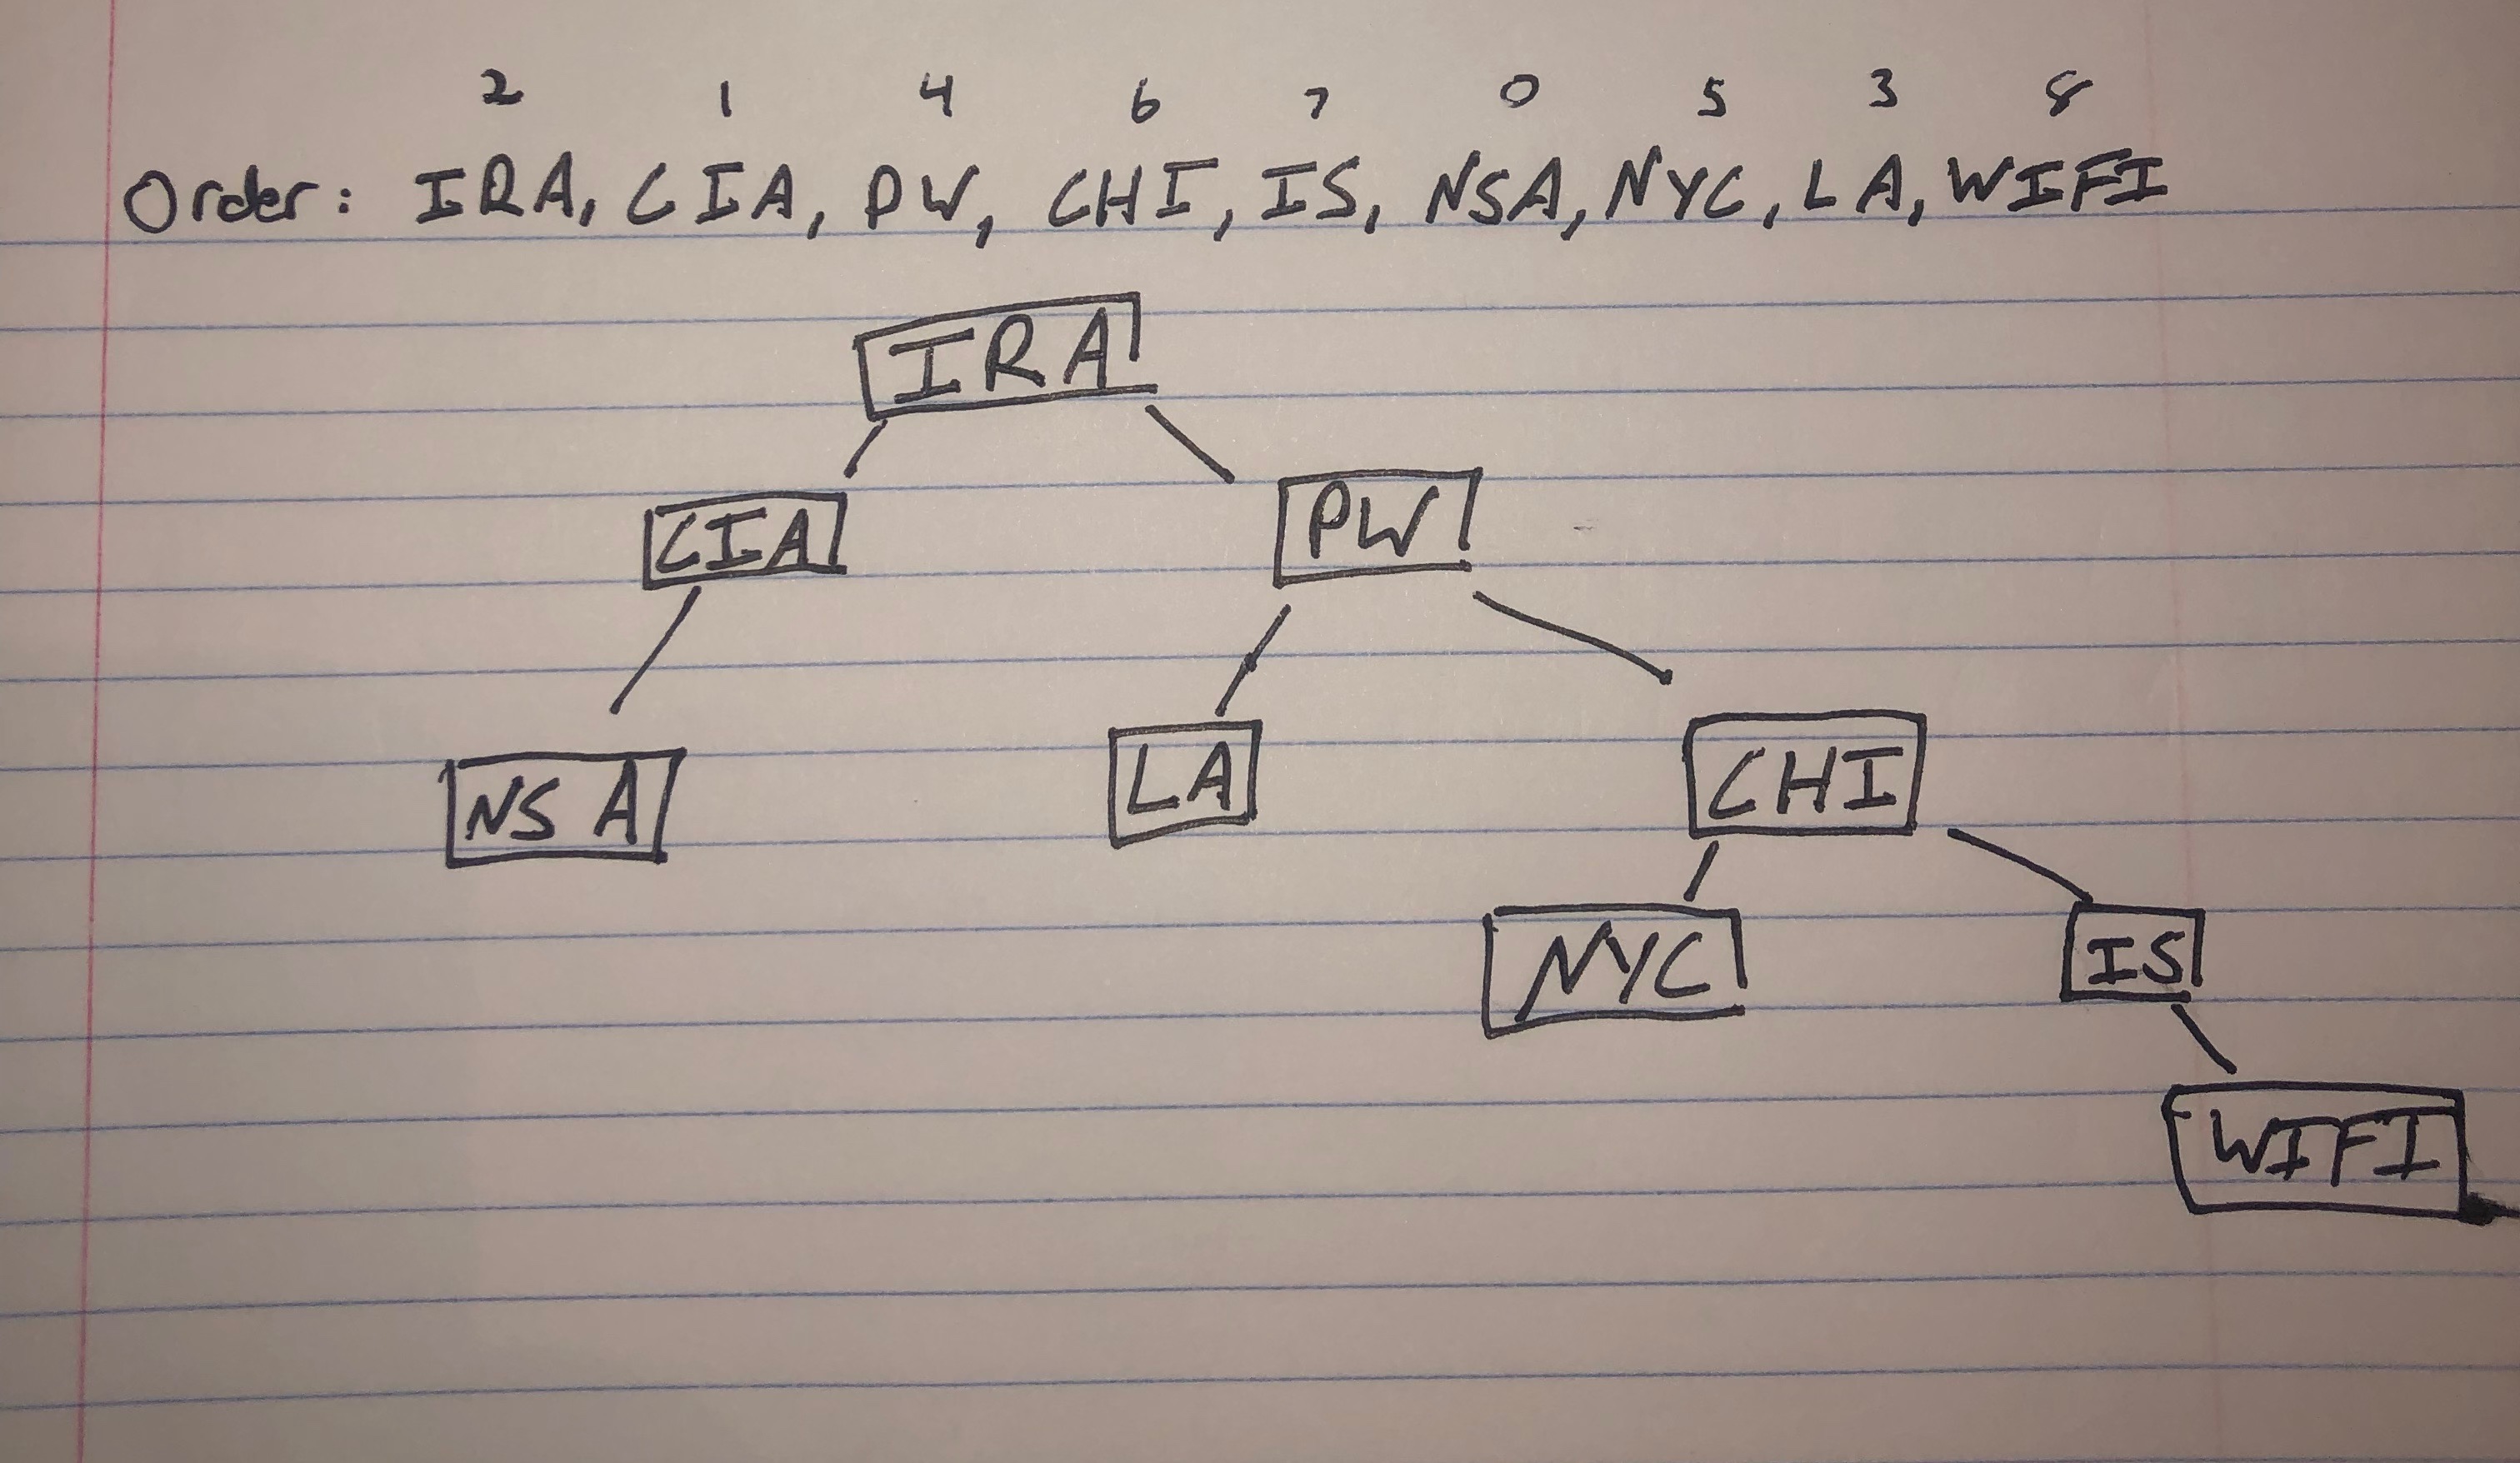 2 1 4 6 7 0 5 3 8
Order: IRA, CIA, PW, CHI, IS, NSA, NYC, LA, WIFI
IRA
CIA PW
NSA LA CHI
NYC IS
WIFI